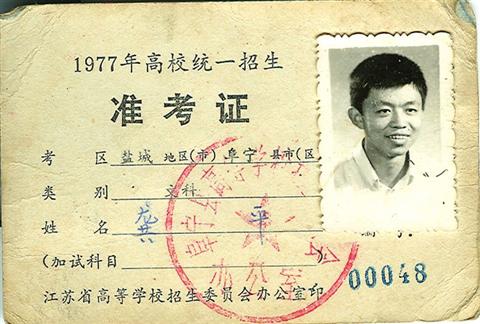 1977年高校统一招生
准考证
考 区 盐城 地区(市) 阜宁 县市(区
类 别 文科
姓 名 龚 平 编号:
(加试科目
00048
江苏省高等学校招生委员会办公室印
办公室